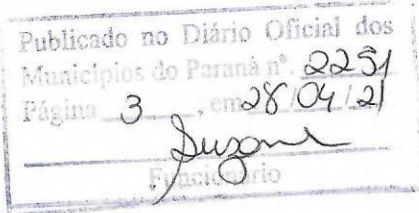 Publicado no Diário Oficial dos
Municípios do Paraná nº. 2251
Página 3, em 28/04/21
Suzane
Funcionário